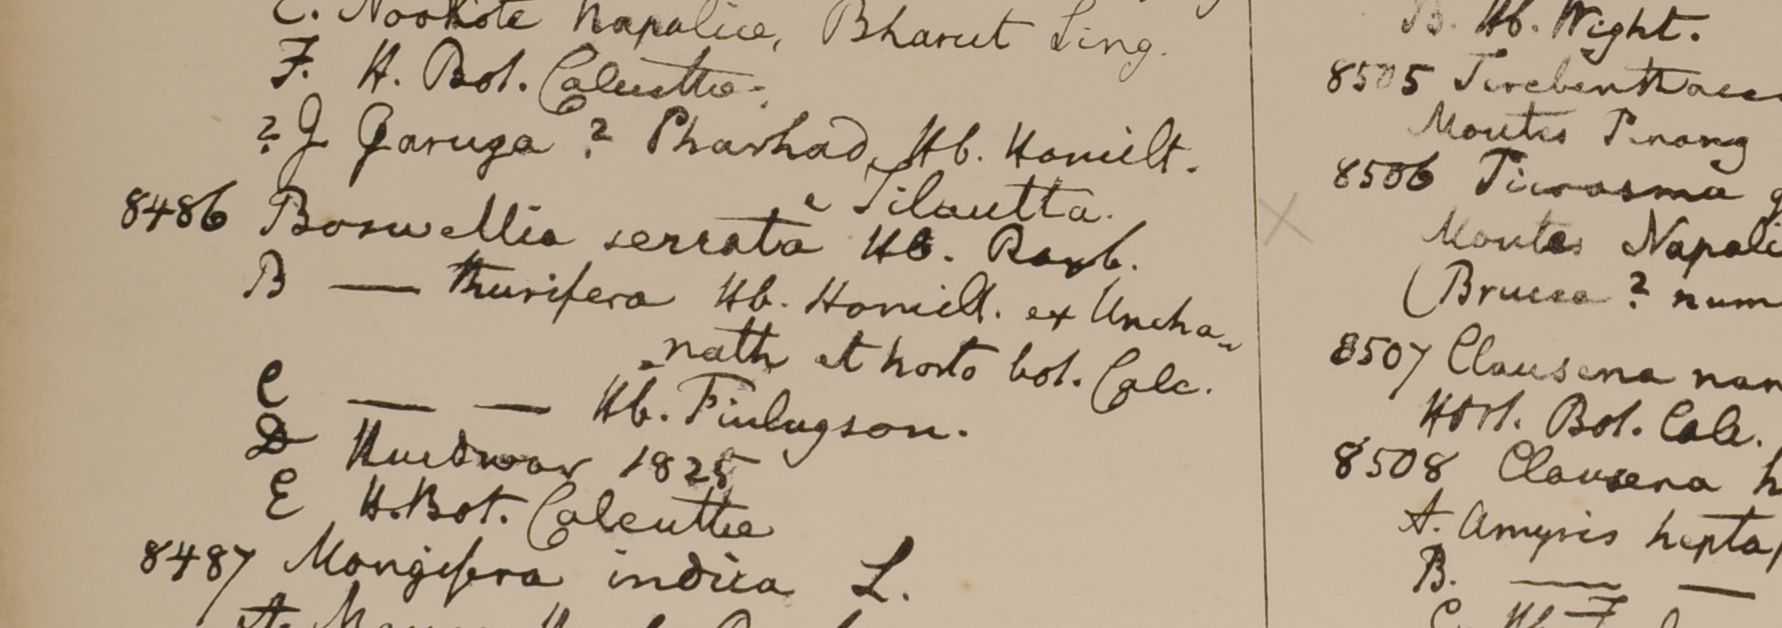 E. Nookote Napaliae, Bharut Sing.
F. H. Bot. Calcutta.
? G Garuga ? Pharhad, Hb. Hamilt.
e Tilautta.
8486 Boswellia serrata Hb. Roxb.
B — thurifera Hb. Hamilt. ex Uncha-
-nath et horto bot. Calc.
C — — Hb. Finlayson.
D Hurdwar 1825
E H. Bot. Calcutta
8487 Mangifera indica L.
B. Hb. Wight.
8505 Terebenthacea
Montes Penang
8506 Picrasma
Montes Napali
(Brucea ? num
8507 Clausena nan
Hort. Bot. Calc.
8508 Clausena h
A. Amyris hepta
B. — —